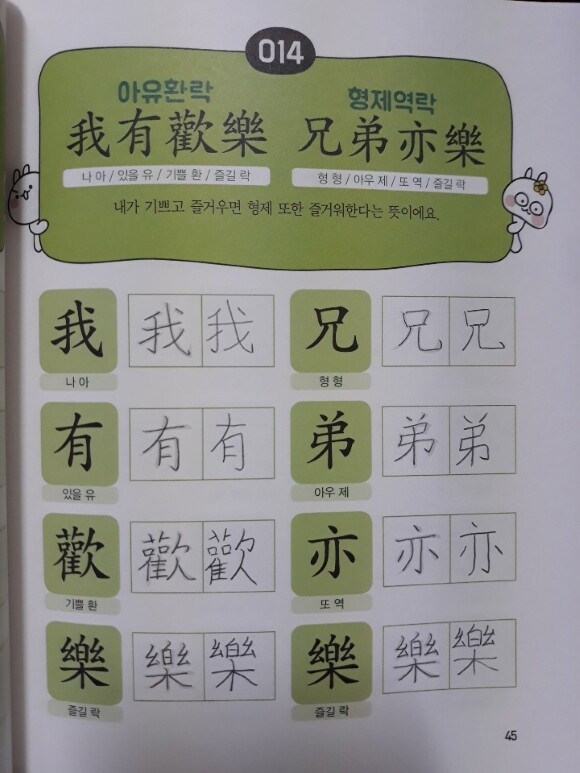 014
아유환락 형제역락
我有歡樂 兄弟亦樂
나 아 / 있을 유 / 기쁠 환 / 즐길 락 형 형 / 아우 제 / 또 역 / 즐길 락
내가 기쁘고 즐거우면 형제 또한 즐거워한다는 뜻이에요.
我 我 我 兄 兄 兄
나 아 형 형
有 有 有 弟 弟 弟
있을 유 아우 제
歡 歡 歡 亦 亦 亦
기쁠 환 또 역
樂 樂 樂 樂 樂 樂
즐길 락 즐길 락
45